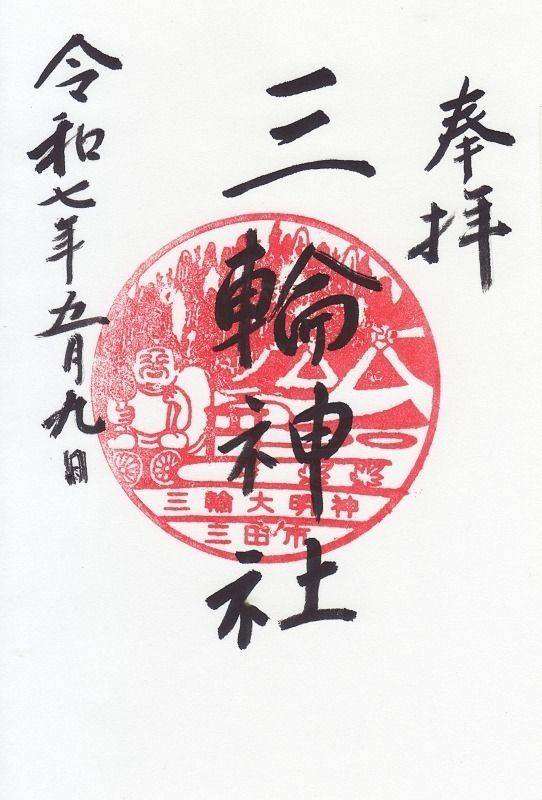 奉拝
三輪神社
令和七年五月九日
三輪大明神
三田市